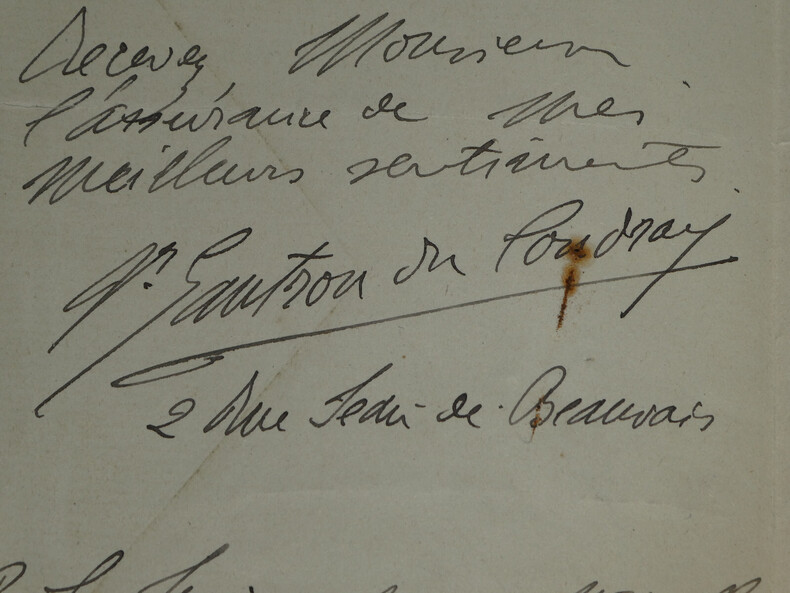 Recevez, Monsieur
l'assurance de mes
meilleurs sentiments.
Gautron du Coudray
2 Rue Jean-de-Beauvais